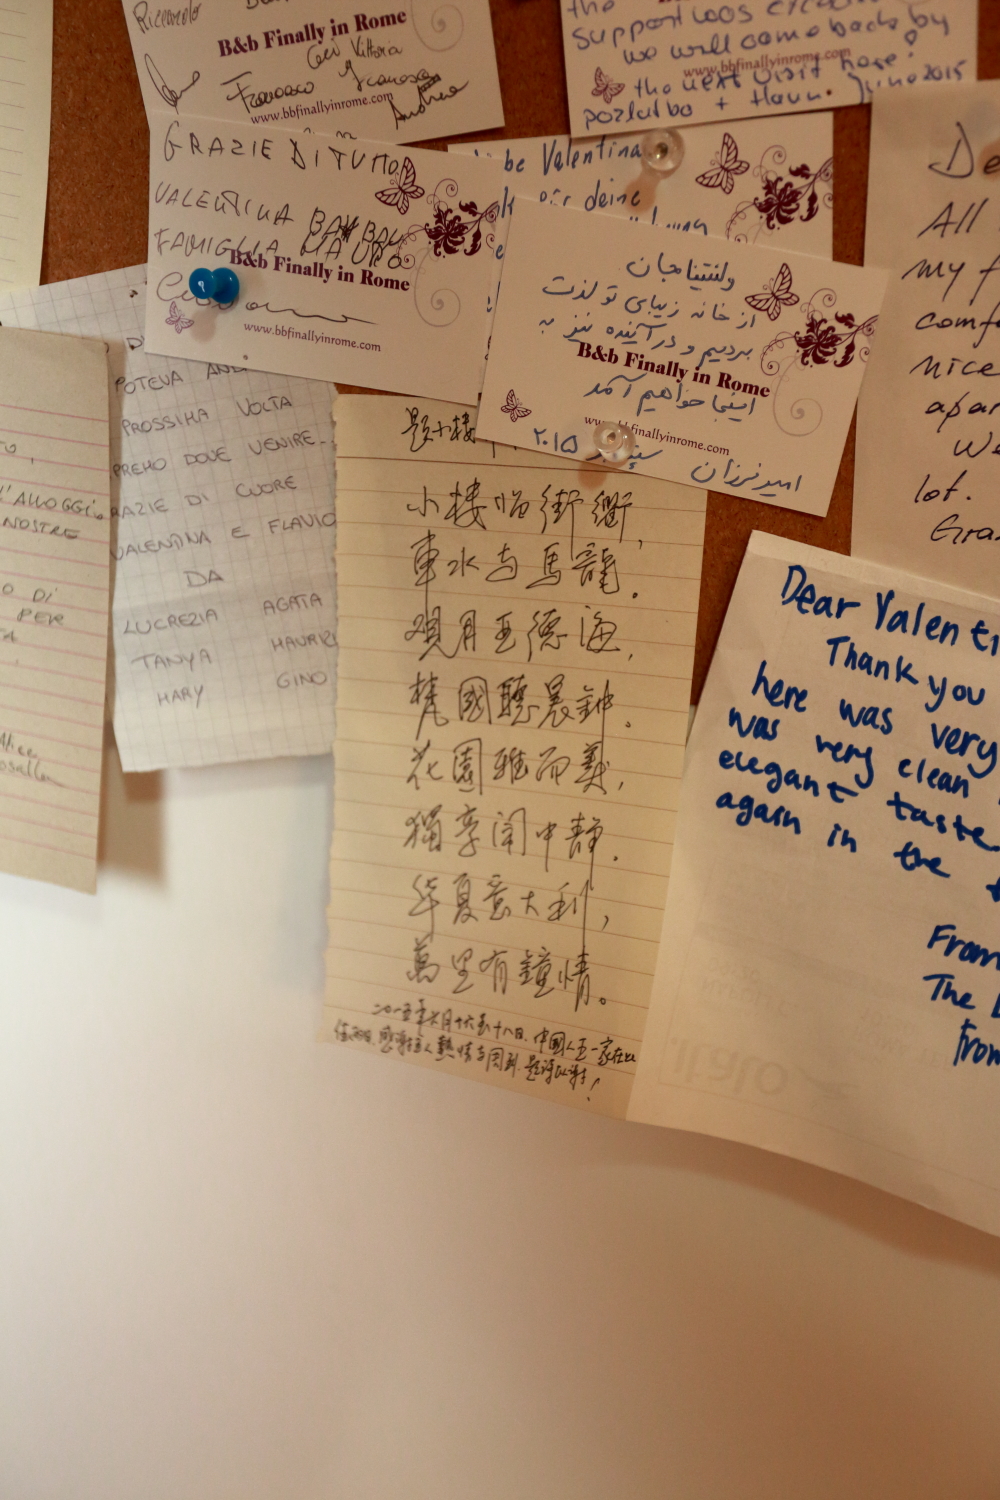 Riccardo
B&b Finally in Rome
Vittoria
Francesco Francesca
www.bbfinallyinrome.com
Andrea
the
support was
we will come back by
www.bbfinallyinrome.com
the next visit here!
+ Haun. June 2015
GRAZIE DI TUTTO
VALENTINA
FAMIGLIA MAURO
B&b Finally in Rome
www.bbfinallyinrome.com
be Valentina
für deine
ولنتینا جان
از خانه زیبای تو لذت
بردیم و در آینده نیز به
B&b Finally in Rome
اینجا خواهیم آمد
www.bbfinallyinrome.com
امیر فرزان
۲۰۱۵
De
All
my f
comfo
nice
apar
We
lot.
Graz
POTEVA AND
PROSSIMA VOLTA
PREMO DOVE VENIRE
RAZIE DI CUORE
VALENTINA E FLAVIO
DA
LUCREZIA AGATA
TANYA MAURI
MARY GINO
L'ALLOGGIO
NOSTRE
O DI
PER
TA.
Alice
題小樓
小樓临街衢,
車水与馬龍。
观月亚德海,
梵國聽晨鈡。
花園雅而美,
獨享闹中静。
华夏意大利,
萬里有鐘情。
二〇一五年六月十六至十八日, 中國人王一家在此
住, 感謝主人熱情与周到, 題詩以謝!
Dear Valenti
Thank you
here was very
was very clean
elegant taste
again in the f
From
The L
from
italo